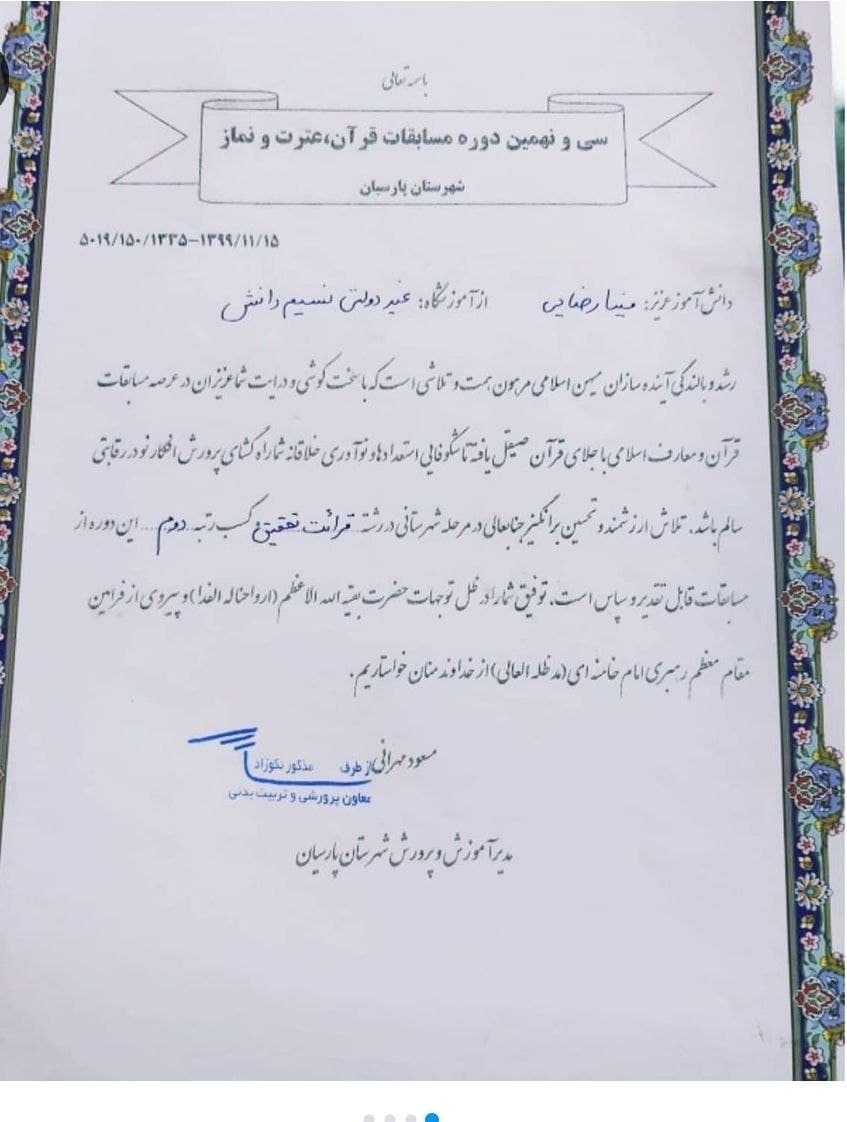 باسمه تعالی
سی و نهمین دوره مسابقات قرآن،عترت و نماز
شهرستان پارسیان
۵۰۱۹/۱۵۰/۱۳۳۵–۱۳۹۹/۱۱/۱۵
دانش آموز عزیز: مبینا رضایی از آموزشگاه: غیر دولتی نسیم دانش
رشد و بالندگی آینده سازان میهن اسلامی مرهون همت و تلاشی است که با سخت کوشی و درایت شما عزیزان در عرصه مسابقات
قرآن و معارف اسلامی با جلای قرآن صیقل یافته تا شکوفایی استعدادها و نوآوری خلاقانه شما راه گشای پرورش افکار نو در رقابتی
سالم باشد. تلاش ارزشمند و تحسین برانگیز جنابعالی در مرحله شهرستانی در رشته قرائت تحقیق و کسب رتبه ..دوم.... این دوره از
مسابقات قابل تقدیر و سپاس است. توفیق شما را در ظل توجهات حضرت بقیه الله الاعظم (ارواحنا له الفدا) و پیروی از فرامین
مقام معظم رهبری امام خامنه ای (مد ظله العالی) از خداوند منان خواستاریم.
مسعود مهرانی
از طرف مذکور نکوزاد
معاون پرورشی و تربیت بدنی
مدیر آموزش و پرورش شهرستان پارسیان